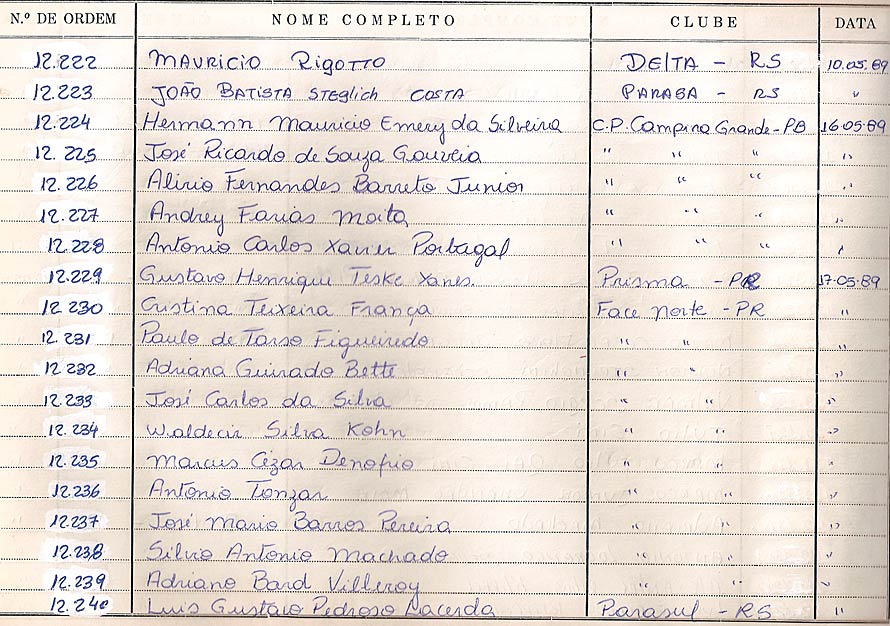 N.º DE ORDEM NOME COMPLETO CLUBE DATA
12.222 MAURICIO RIGOTTO DELTA - RS 10.05.89
12.223 JOÃO BATISTA STEGLICH COSTA PARABA - RS "
12.224 Hermann Mauricio Emery da Silveira C.P. Campina Grande - PB 16.05.89
12.225 José Ricardo de Souza Gouveia " " " "
12.226 Alirio Fernandes Barreto Junior " " " "
12.227 Andrey Farias Maita " " " "
12.228 Antonio Carlos Xavier Portugal " " " "
12.229 Gustavo Henrique Teske Yanes. Prisma - PR 17.05.89
12.230 Cristina Teixeira França Face Norte - PR "
12.231 Paulo de Tarso Figueiredo " " "
12.232 Adriana Guirado Bette " " "
12.233 José Carlos da Silva " " "
12.234 Waldecir Silva Kohn " " "
12.235 Marcus Cézar Denofrio " " "
12.236 Antonio Tonzar " " "
12.237 José Mario Barros Pereira " " "
12.238 Silvio Antonio Machado " " "
12.239 Adriano Bard Villeroy " " "
12.240 Luis Gustavo Pedroso Lacerda Parasul - RS "